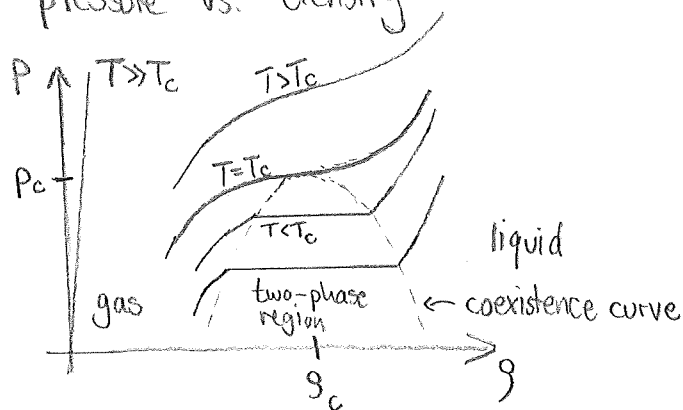 pressure vs. density
P
T≫Tc
T>Tc
Pc
T=Tc
T<Tc
liquid
gas
two-phase
region
← coexistence curve
ρc
ρ